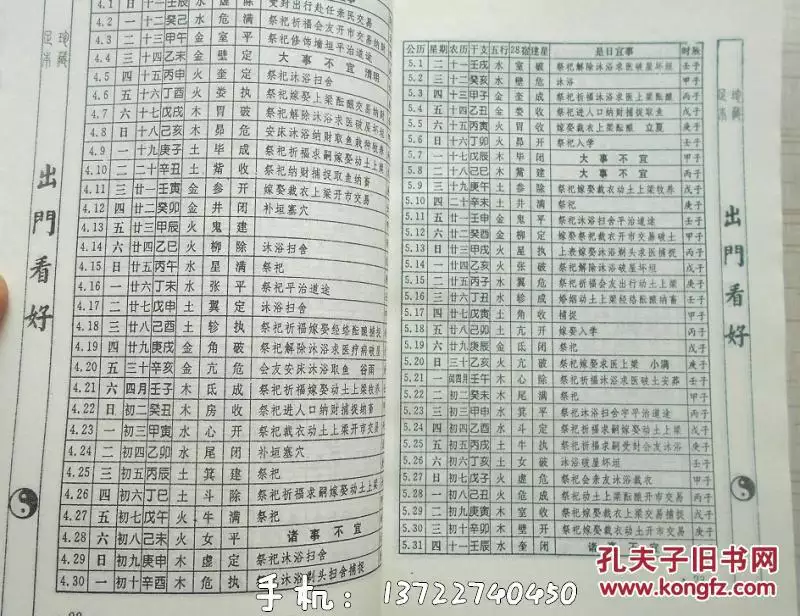 4.1 日 十一 壬辰 水 受封出行赴任亲民交易
4.2 一 十二 癸巳 水 危 满 祭祀祈福会友开市交易纳财
4.3 二 十三 甲午 金 室 平 祭祀修饰墙垣平治道途
4.4 三 十四 乙未 金 壁 定 大事不宜 清明
4.5 四 十五 丙申 火 奎 定 祭祀沐浴扫舍
4.6 五 十六 丁酉 火 娄 执 祭祀嫁娶上梁酝酿交易纳财
4.7 六 十七 戊戌 木 胃 破 祭祀解除沐浴求医破屋坏垣
4.8 日 十八 己亥 木 昴 危 安床沐浴纳财取鱼栽种牧养
4.9 一 十九 庚子 土 毕 成 祭祀祈福求嗣嫁娶动土上梁
4.10 二 二十 辛丑 土 觜 收 祭祀纳财捕捉取鱼纳畜
4.11 三 廿一 壬寅 金 参 开 嫁娶裁衣动土上梁开市交易
4.12 四 廿二 癸卯 金 井 闭 补垣塞穴
4.13 五 廿三 甲辰 火 鬼 建
4.14 六 廿四 乙巳 火 柳 除 沐浴扫舍
4.15 日 廿五 丙午 水 星 满 祭祀
4.16 一 廿六 丁未 水 张 平 祭祀平治道途
4.17 二 廿七 戊申 土 翼 定 沐浴扫舍
4.18 三 廿八 己酉 土 轸 执 祭祀祈福嫁娶经络酝酿捕捉
4.19 四 廿九 庚戌 金 角 破 祭祀解除沐浴求医疗病破屋
4.20 五 三十 辛亥 金 亢 危 会友安床沐浴取鱼 谷雨
4.21 六 四月 壬子 木 氐 成 祭祀祈福嫁娶动土上梁牧养
4.22 日 初二 癸丑 木 房 收 祭祀进人口纳财捕捉纳畜
4.23 一 初三 甲寅 水 心 开 祭祀裁衣动土上梁开市交易
4.24 二 初四 乙卯 水 尾 闭 补垣塞穴
4.25 三 初五 丙辰 土 箕 建 祭祀
4.26 四 初六 丁巳 土 斗 除 祭祀祈福求嗣嫁娶动土上梁
4.27 五 初七 戊午 火 牛 满 祭祀
4.28 六 初八 己未 火 女 平 诸事不宜
4.29 日 初九 庚申 木 虚 定 祭祀沐浴扫舍
4.30 一 初十 辛酉 木 危 执 祭祀沐浴剃头扫舍捕捉
珍藏
出門看好
公历 星期 农历 干支 五行 28宿 建星 是日宜事 时辰
5.1 二 十一 壬戌 水 室 破 祭祀解除沐浴求医破屋坏垣
5.2 三 十二 癸亥 水 壁 危 沐浴
5.3 四 十三 甲子 金 奎 成 祭祀祈福沐浴求医上梁酝酿
5.4 五 十四 乙丑 金 娄 收 祭祀进人口纳财捕捉取鱼
5.5 六 十五 丙寅 火 胃 收 嫁娶裁衣上梁酝酿 立夏
5.6 日 十六 丁卯 火 昴 开 祭祀入学
5.7 一 十七 戊辰 木 毕 闭 大事不宜
5.8 二 十八 己巳 木 觜 建 大事不宜
5.9 三 十九 庚午 土 参 除 祭祀嫁娶裁衣动土上梁牧养
5.10 四 二十 辛未 土 井 满 祭祀
5.11 五 廿一 壬申 金 鬼 平 祭祀沐浴扫舍平治道途
5.12 六 廿二 癸酉 金 柳 定 嫁娶祭祀裁衣开市交易破土
5.13 日 廿三 甲戌 火 星 执 上表嫁娶沐浴剃头求医捕捉
5.14 一 廿四 乙亥 火 张 破 祭祀解除沐浴破屋坏垣
5.15 二 廿五 丙子 水 翼 危 祭祀祈福会友出行动土上梁
5.16 三 廿六 丁丑 水 轸 成 婚姻动土上梁经络酝酿纳畜
5.17 四 廿七 戊寅 土 角 收 捕捉
5.18 五 廿八 己卯 土 亢 开 嫁娶入学
5.19 六 廿九 庚辰 金 氐 闭 祭祀
5.20 日 三十 祭祀嫁娶求医上梁 小满
5.21 一 闰四月 壬午 木 心 除 祭祀祈福沐浴求医破土安葬
5.22 二 初二 癸未 木 尾 满 祭祀
5.23 三 初三 甲申 水 箕 平 祭祀沐浴扫舍平治道途
5.24 四 初四 乙酉 水 斗 定 祭祀祈福求嗣嫁娶动土上梁
5.25 五 初五 丙戌 土 牛 执 祭祀祈福求嗣受封会友沐浴
5.26 六 初六 丁亥 土 女 破 沐浴破屋坏垣
5.27 日 初七 戊子 火 虚 危 祭祀会亲友沐浴裁衣
5.28 一 初八 己丑 火 危 成 祭祀动土上梁酝酿开市交易
5.29 二 初九 庚寅 木 室 收 祭祀裁衣上梁酝酿交易
5.30 三 初十 辛卯 木 壁 开 祭祀嫁娶动土上梁开市交易
5.31 四 十一 壬辰 水 奎 闭 诸事不宜
珍藏
出門看好
手机：13722740450
孔夫子旧书网
www.kongfz.com